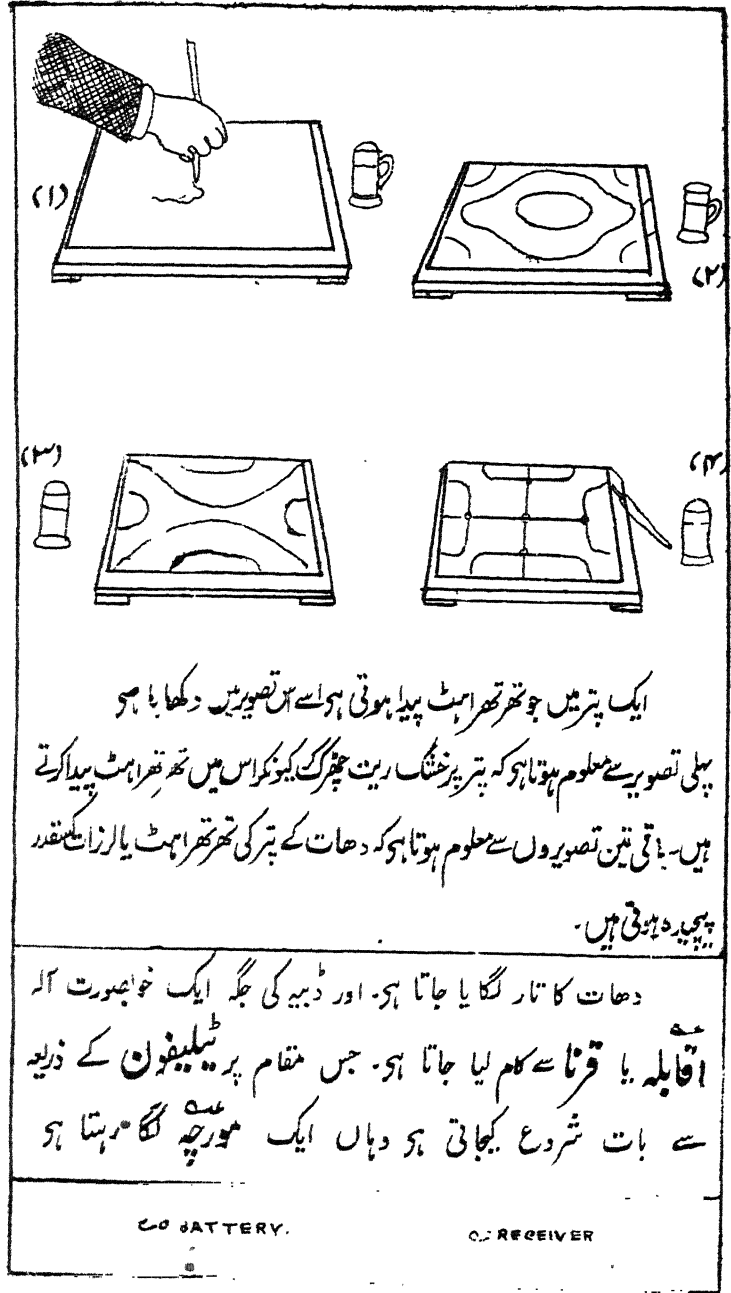 (۱)
(۲)
(۳)
(۴)
ایک پتر میں جو تھرتھراہٹ پیدا ہوتی ہی اسے اس تصویر میں دکھایا ہی
پہلی تصویر سے معلوم ہوتا ہی کہ پتر پر خشک ریت چھڑک کر کیونکر اس میں تھرتھراہٹ پیدا کرتے
ہیں۔ باقی تین تصویروں سے معلوم ہوتا ہی کہ دھات کے پتر کی تھرتھراہٹ یا لرزات کسقدر
پیچیدہ ہوتی ہیں۔
دھات کا تار لگایا جاتا ہی۔ اور ڈبیہ کی جگہ ایک خوبصورت آلہ
آقابلہ یا قرنا سے کام لیا جاتا ہی۔ جس مقام پر ٹیلیفون کے ذریعہ
سے بات شروع کیجاتی ہی وہاں ایک مورچہ لگا رہتا ہی
BATTERY. RECEIVER